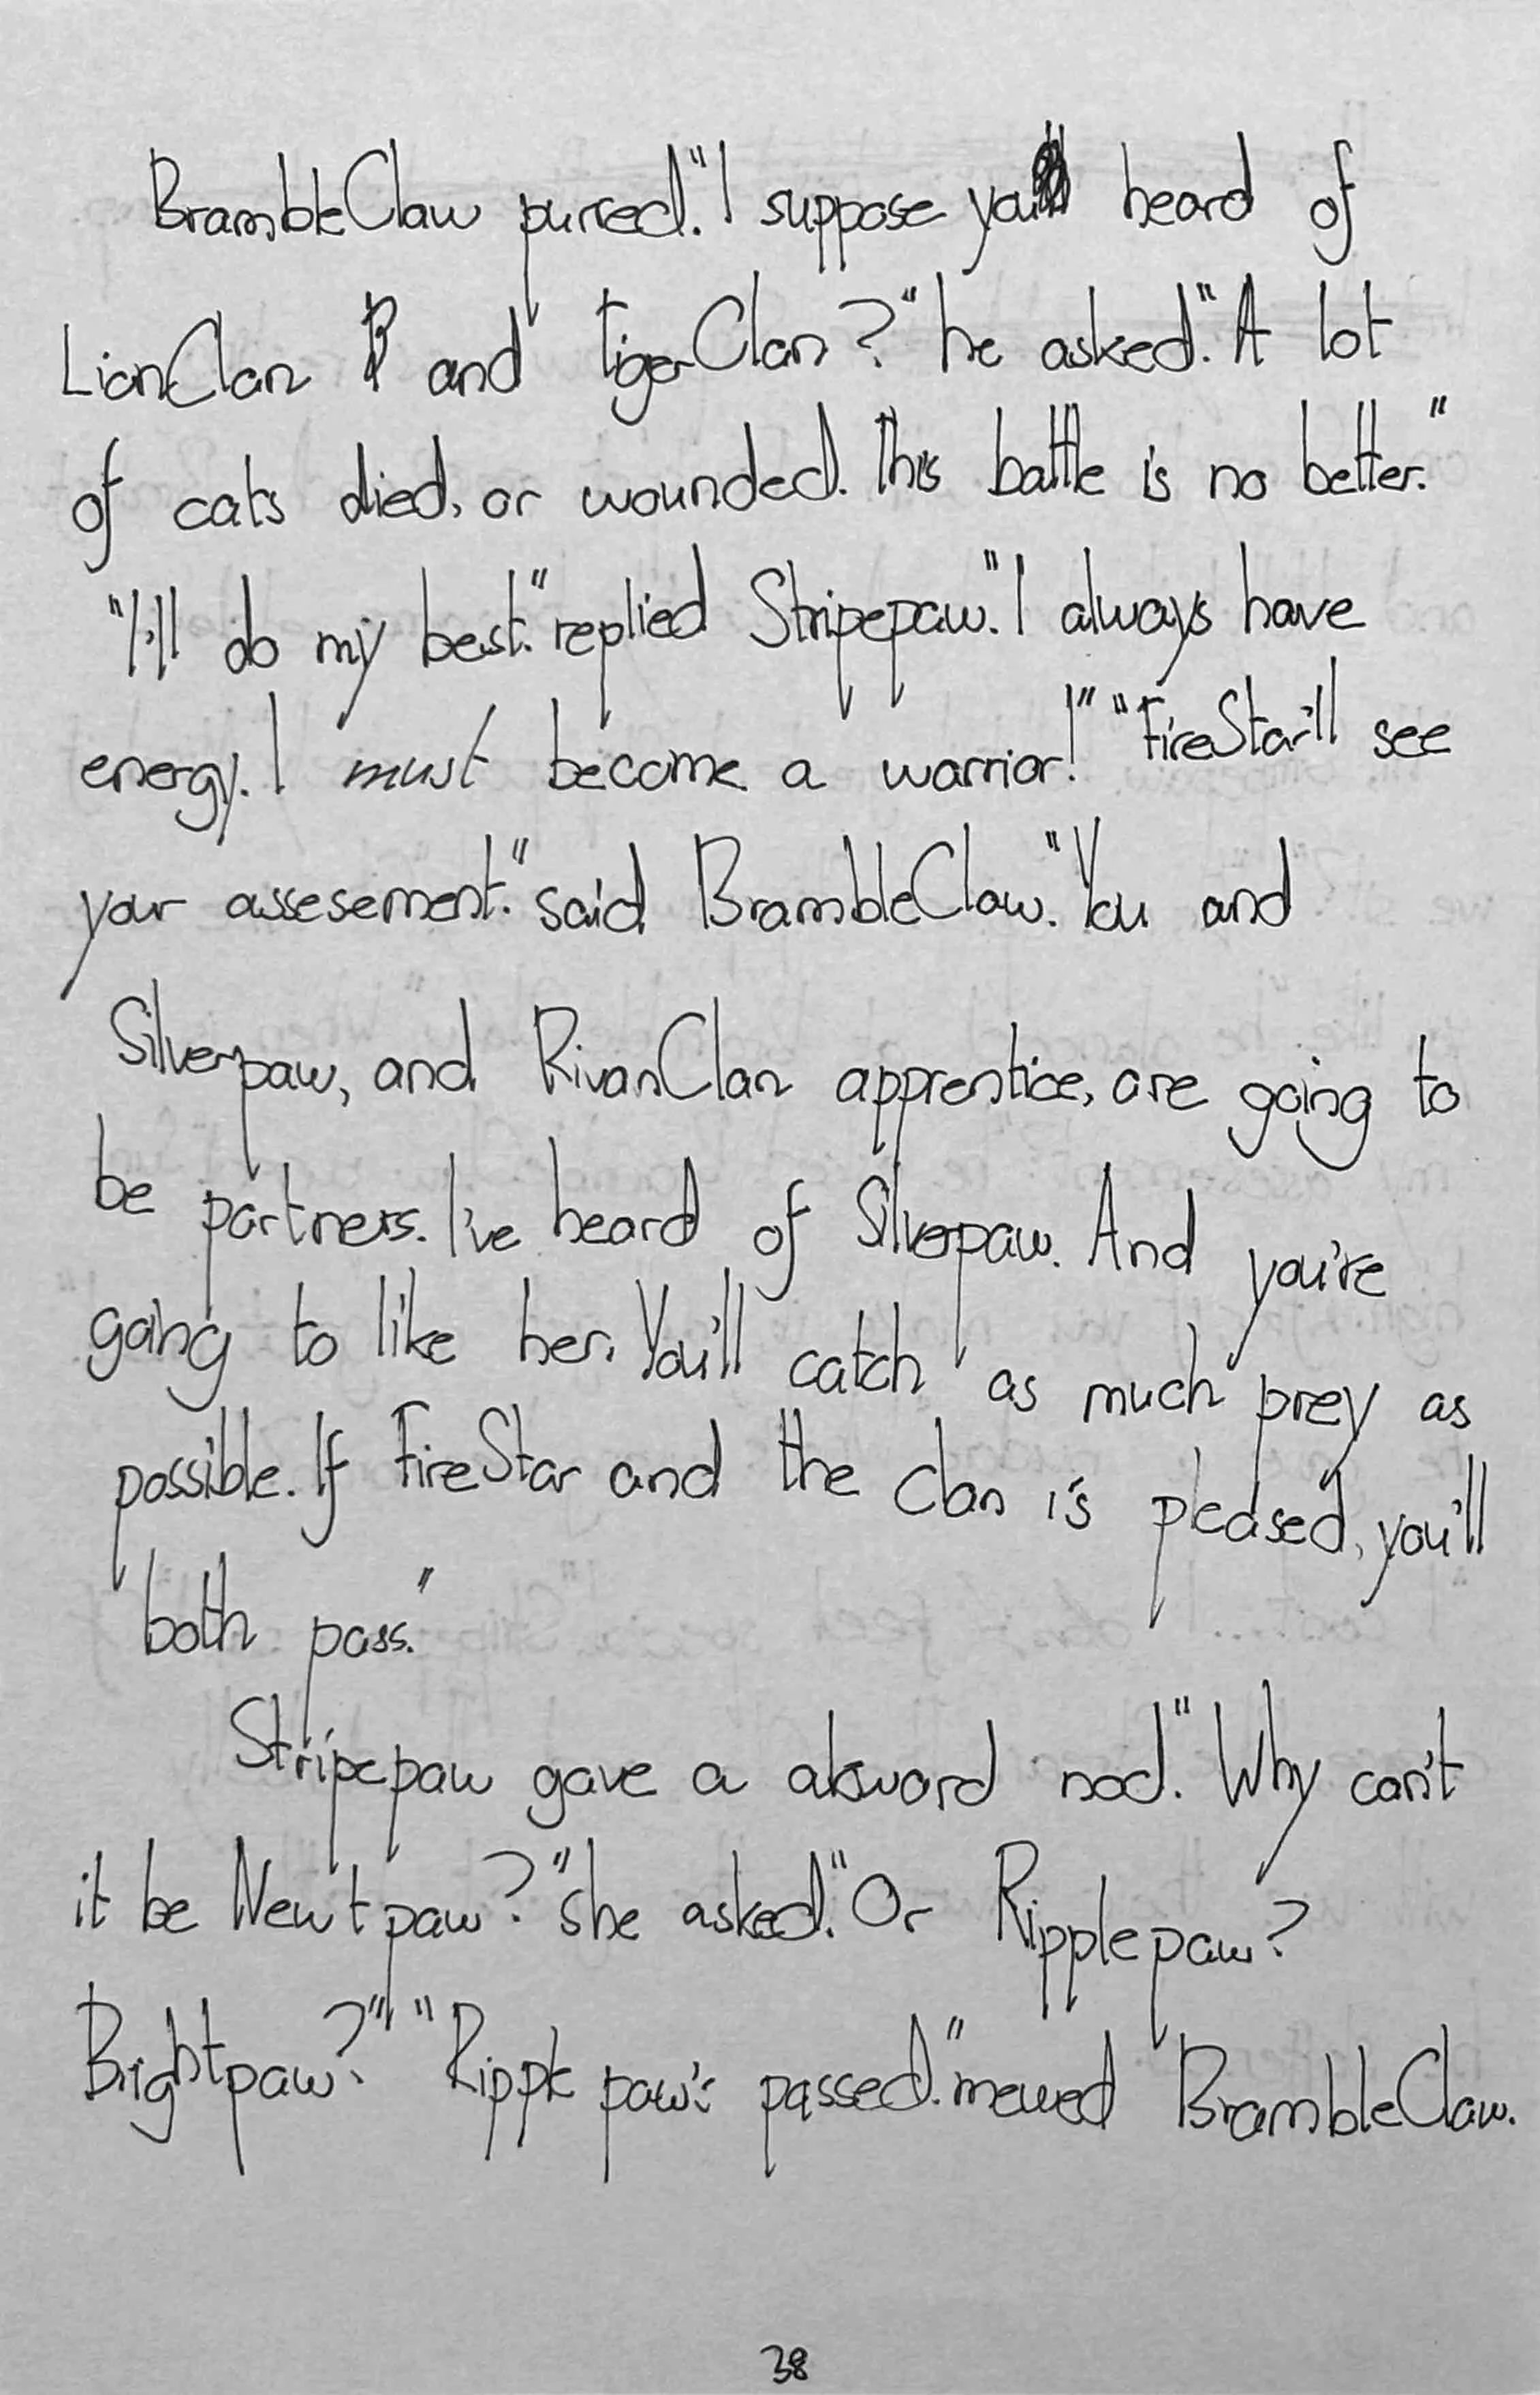 BrambleClaw purred."I suppose you heard of
LionClan and TigerClan?" he asked."A lot
of cats died, or wounded. This battle is no better."
"I'll do my best."replied Stripepaw."I always have
energy. I must become a warrior!" "FireStar'll see
your assesement."said BrambleClaw."You and
Silverpaw, and RivanClan apprentice, are going to
be partners. I've heard of Silverpaw. And you're
going to like her. You'll catch as much prey as
possible. If FireStar and the clan is pleased, you'll
both pass."
Stripepaw gave a akword nod."Why can't
it be Newtpaw?"she asked."Or Ripplepaw?
Brightpaw?" "Ripplepaw's passed."mewed BrambleClaw.
38